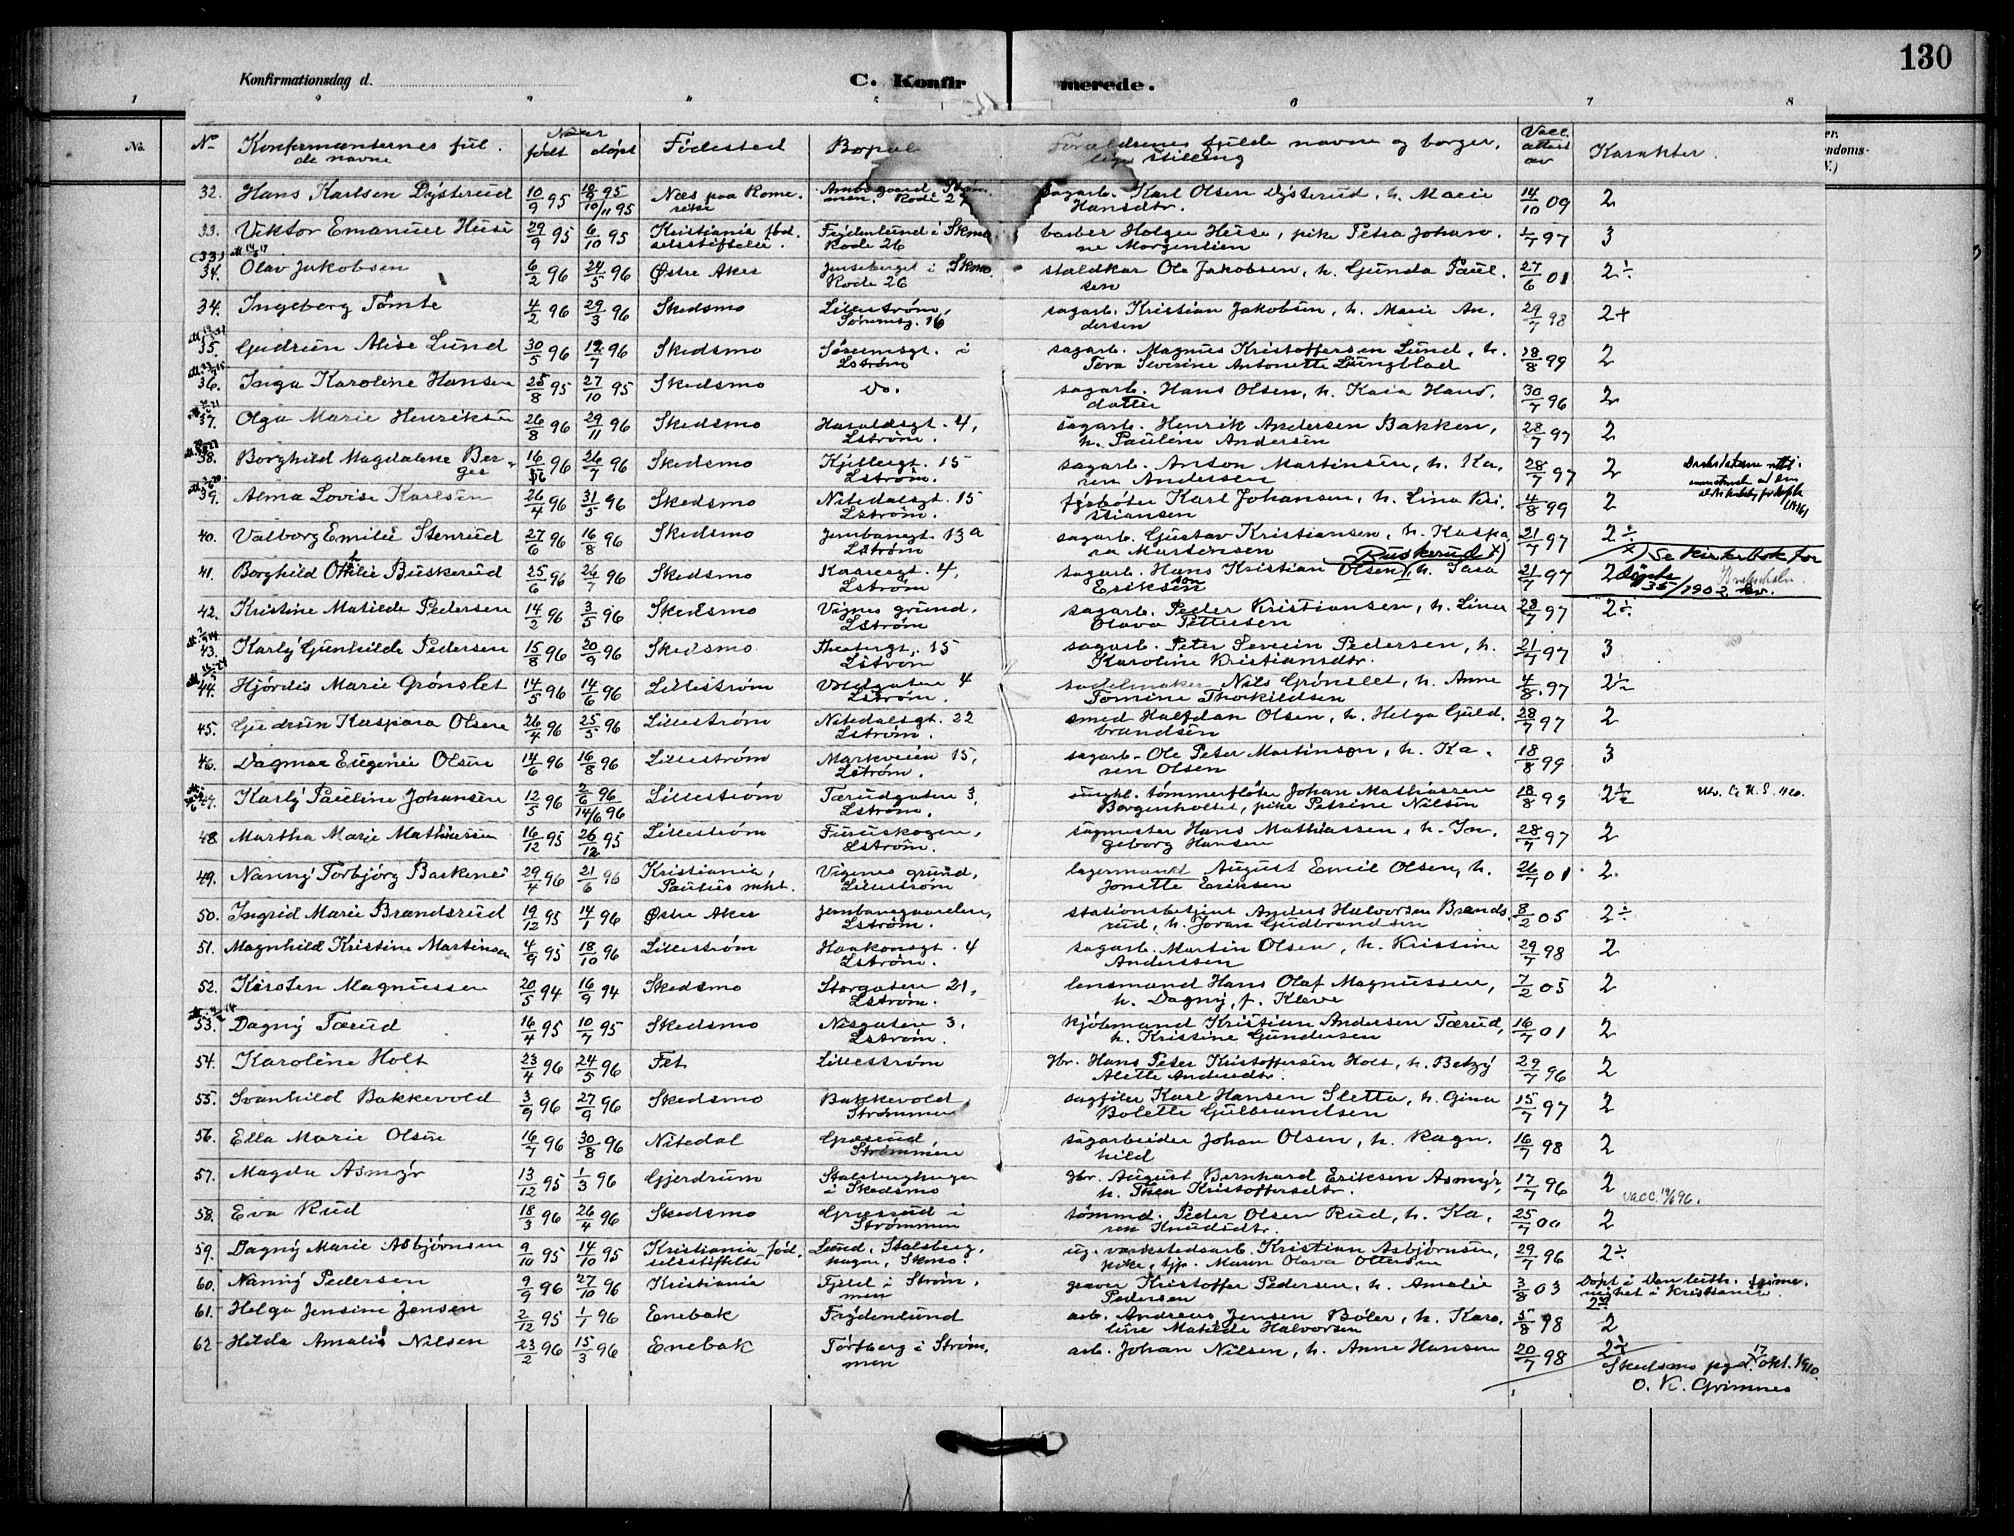 130
Konfirmationsdag d.
C. Konfir merede.
1 6 7 8
No.
No Konfirmanternes fulde navne Naar født døpt Fødested Bopæl Forældrenes fulde navne og borgerlige stilling Vacc. attest av Karakter.
32. Hans Karlsen Dysterud 10/9 95 10/11 95 Næs paa Romerike men, Rode 27 sagarb. Karl Olsen Dysterud, h. Marie Hansdtr. 14/10 09 2
33. Viktor Emanuel Huse 29/9 95 6/10 95 Kristiania fødselsstiftelse. Frydenlund i Skmo Rode 26 barber Holger Huse, pike Petra Johanne Morgenlien 1/7 97 3
(33) 34. Olav Jakobsen 6/2 96 24/5 96 Østre Aker Jenseberget i Skmo. Rode 26 staldkar Ole Jakobsen, h. Gunda Paulsen 27/6 01 2÷
34. Ingeborg Tømte 4/2 96 29/3 96 Skedsmo Lillestrøm, Sørumsg. 16 sagarb. Kristian Jakobsen, h. Marie Andersen 29/7 98 2+
35. Gudrun Alise Lund 30/5 96 12/7 96 Skedsmo Sørumsgt. i Lstrøm sagarb. Magnus Kristoffersen Lund, h. Tora Severine Antonette Ljungblad 28/8 99 2
36. Inga Karoline Hansen 25/8 95 27/10 95 Skedsmo do. sagarb. Hans Olsen, h. Kaia Hansdatter 30/7 96 2
37. Olga Marie Henriksen 26/8 96 29/11 96 Skedsmo Haraldsgt. 4, Lstrøm. sagarb. Henrik Andersen Bakken, h. Pauline Andersen 28/7 97 2
38. Borghild Magdalene Berger 16/6 96 26/7 96 Skedsmo Kjellergt. 15 Lstrøm. sagarb. Anton Martinsen, h. Karen Andersen 28/7 97 2
39. Alma Lovise Karlsen 26/4 96 31/5 96 Skedsmo Nitedalsgt. 15 Lstrøm. fyrbøter Karl Johansen, h. Lina Kristiansen 4/8 99 2
40. Valborg Emilie Stenrud 27/6 96 16/8 96 Skedsmo Jernbanegt. 13a Lstrøm sagarb. Gustav Kristiansen, h. Kaspara Martensen 21/7 97 2÷
Buskerud x)
x) Se kirkebok for døpte 35/1902 kv.
41. Borghild Otthlie Buskerud 25/6 96 26/7 96 Skedsmo 4, Lstrøm sagarb. Hans Kristian Olsen, h. Sara Eriksson 21/7 97 2
42. Kristine Matilde Pedersen 14/2 96 3/5 96 Skedsmo Vignes grund, Lstrøm sagarb. Peder Kristiansen, h. Lina Olava Pettersen 28/7 97 2÷
43. Karly Gunhilde Pedersen 15/8 96 20/9 96 Skedsmo Theatergt. 15 Lstrøm sagarb. Peter Severin Pedersen, h. Karoline Kristiansdtr. 21/7 97 3
44. Hjørdis Marie Grønslet 14/5 96 14/6 96 Lillestrøm Voldgaten 4 Lstrøm. sadelmaker Nils Grønslet, h. Anne Tomine Thorkildsen 4/8 97 2½
45. Gudrun Kaspara Olsen 26/4 96 25/5 96 Lillestrøm Nitedalsgt. 22 Lstrøm. smed Halfdan Olsen, h. Helga Guldbrandsen 28/7 97 2
46. Dagmar Eugenie Olsen 14/6 96 16/8 96 Lillestrøm Markveien 15, Lstrøm. sagarb. Ole Peter Martinson, h. Karen Olsen 18/8 99 3
47. Karly Pauline Johansen 12/5 96 2/6 96 14/6 96 Lillestrøm Tærudgaten 3, Lstrøm. ungkl. tømmerfløter Johan Mathiassen Borgenholtet, pike Petrine Nilsen 18/8 99 2½
48. Martha Marie Mathiassen 16/12 95 26/12 95 Lillestrøm Furuskogen, Lstrøm. sagmester Hans Mathiassen, h. Ingeborg Hansen 28/7 97 2
49. Nanny Torbjørg Barkenes 29/4 96 21/6 96 Kristiania, Paulus mht. Vignes grund, Lillestrøm lagermand August Emil Olsen, h. Jonette Eriksen 26/7 01 2
50. Ingrid Marie Brandsrud 19/12 95 14/1 96 Østre Aker Jernbanegaarden, Lstrøm. stationsbetjent Anders Halvorsen Brandsrud, h. Joran Gudbrandsen 8/2 05 2÷
51. Magnhild Kristine Martinsen 4/9 95 18/10 96 Lillestrøm Haakonsgt. 4 Lstrøm. sagarb. Martin Olsen, h. Kristine Anderssen 29/7 98 2
52. Kirsten Magnussen 20/5 94 16/9 94 Skedsmo Storgaten 21, Lstrøm. lensmand Hans Olaf Magnussen, h. Dagny, f. Klave 7/2 05 2
53. Dagny Tærud 16/4 95 10/7 95 Skedsmo Nesgaten 3, Lstrøm. kjøbmand Kristian Andersen Tærud, h. Kristine Gundersen 16/7 01 2
54. Karoline Holt 23/4 96 24/5 96 Fet Lillestrøm gbr. Hans Peter Kristoffersen Holt, h. Betzy Alette Andersdtr. 29/7 96 2
55. Svanhild Bakkevold 3/9 96 27/9 96 Skedsmo Bakkevold, Strømmen sagfiler Karl Hansen Sletta, h. Gina Bolette Gulbrandsen 15/7 97 2
56. Ella Marie Olsen 16/7 96 30/8 96 Nitedal Græsrud, Strømmen sagarbeider Johan Olsen, h. Ragnhild 16/7 98 2
57. Magda Asmyr 13/12 95 1/3 96 Gjerdrum Stalsberghagen i Skedsmo gbr. August Bernhard Eriksen Asmyr, h. Thea Kristoffersdtr. 17/7 96 2 vacc. 19/6 96.
58. Eva Rud 18/3 96 26/4 96 Skedsmo Græsrud i Strømmen tømmd. Peder Olsen Rud, h. Karen Knudsdtr. 25/7 00 2
59. Dagny Marie Asbjørnsen 9/10 95 14/10 95 Kristiania fødselsstiftelse Lund, Stalsberghagen, Skmo. ug. verkstedsarb. Kristian Asbjørnsen, pike, tjp. Maren Olava Ottersen 29/7 96 2÷
60. Nanny Pedersen 9/9 96 27/10 96 Kristiania Fjeld i Strømmen graver Kristoffer Pedersen, h. Amalie Pedersen 3/8 03 Døpt i Den luth. frimenighet i Kristiania.
61. Helga Jensine Jensen 2/12 95 1/1 96 Enebak Frydenlund arb. Andreas Jensen Bøler, h. Karoline Matilde Halvorsen 5/8 98 2
62 Hilda Amalie Nilsen 23/2 96 15/3 96 Enebak Tørberg i Strømmen arb. Johan Nilsen, h. Anne Hansen 20/7 98 2½
Skedsmo pgd. 17 okt. 1910.
O. K. Grimnes